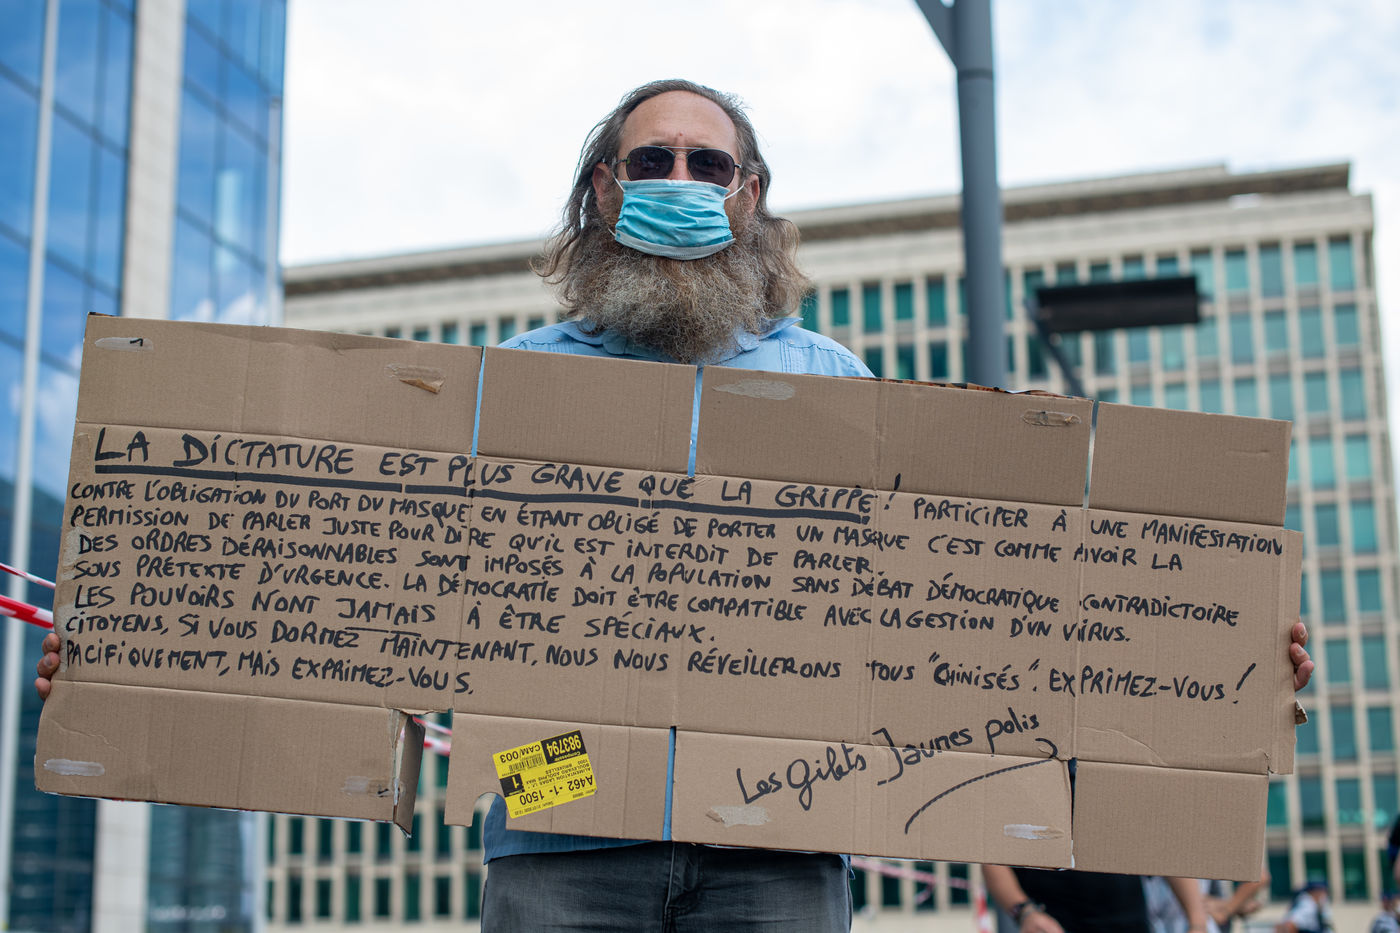 LA DICTATURE EST PLUS GRAVE QUE LA GRIPPE ! PARTICIPER À UNE MANIFESTATION
CONTRE L'OBLIGATION DU PORT DU MASQUE EN ÉTANT OBLIGÉ DE PORTER UN MASQUE C'EST COMME AVOIR LA
PERMISSION DE PARLER JUSTE POUR DIRE QU'IL EST INTERDIT DE PARLER.
DES ORDRES DÉRAISONNABLES SONT IMPOSÉS À LA POPULATION SANS DÉBAT DÉMOCRATIQUE CONTRADICTOIRE
SOUS PRÉTEXTE D'URGENCE. LA DÉMOCRATIE DOIT ÊTRE COMPATIBLE AVEC LA GESTION D'UN VIRUS.
LES POUVOIRS N'ONT JAMAIS À ÊTRE SPÉCIAUX.
CITOYENS, SI VOUS DORMEZ MAINTENANT, NOUS NOUS RÉVEILLERONS TOUS "CHINISÉS". EXPRIMEZ-VOUS !
PACIFIQUEMENT, MAIS EXPRIMEZ-VOUS.
Les Gilets Jaunes polis
A462 -1- 1500
983794
CAM/003
1